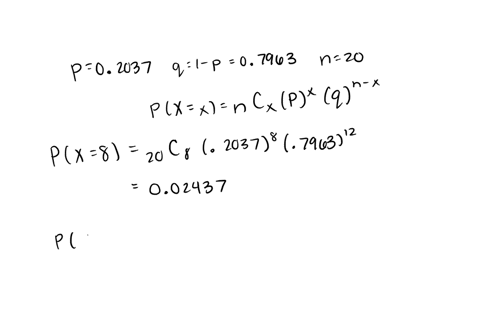 p=0.2037 q=1-p=0.7963 n=20
P(X=x)=nCx(P)^x(q)^n-x
P(X=8) = 20C8(.2037)^8(.7963)^12
= 0.02437
P(